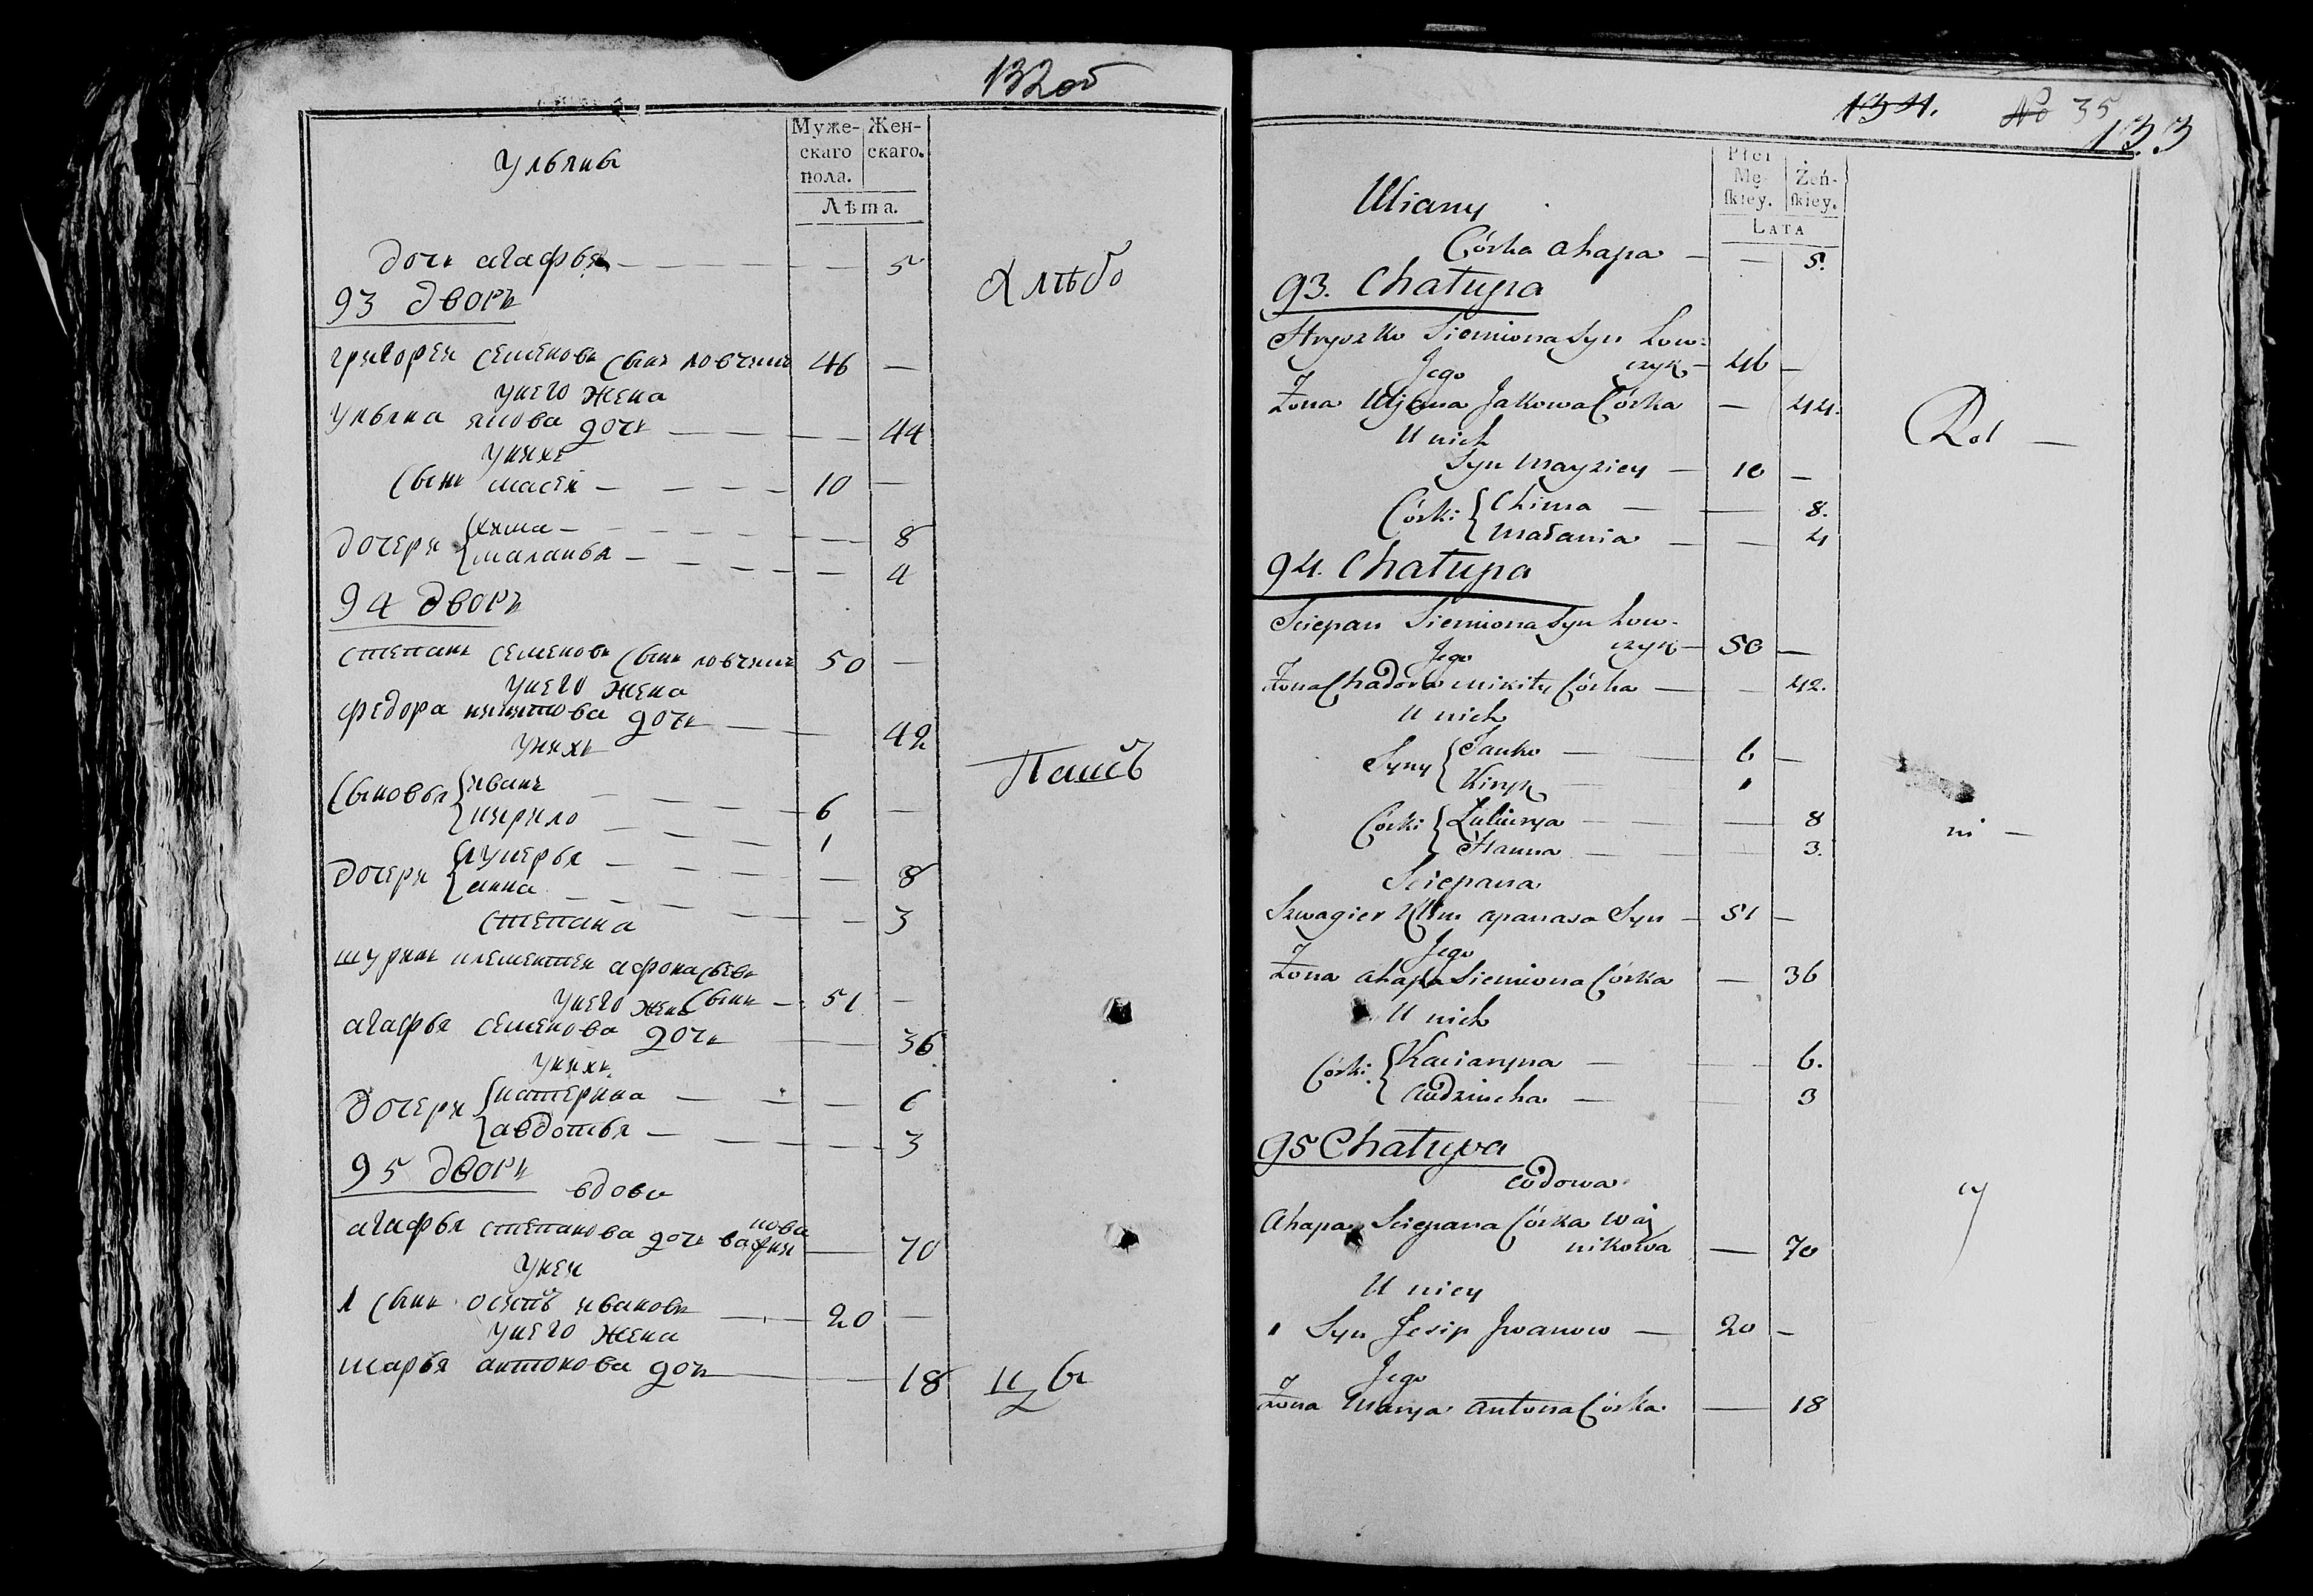 132об
Муже-
скаго
пола.
Жен-
скаго.
Лѣта.
Ульяны
дочь агафья — 5
93 дворъ
григорей семеновъ сынъ ловчикъ 46 —
у него жена
ульяна якова дочь — 44
у нихъ
сынъ масей — 10 —
дочери { хима — 8
маланья — 4
94 дворъ
степанъ семеновъ сынъ ловчикъ 50 —
у него жена
федора никитова дочь — 42
у нихъ
сыновья { иванъ — 6 —
кирило — 1
дочери { лукерья — 8
анна — 3
степана
шуринъ клементей афонасьевъ
сынъ — 51 —
у него жена
агафья семенова дочь — 36
у нихъ
дочери { катерина — 6
авдотья — 3
95 дворъ
вдова
агафья степанова дочь — 70
у ней
1 сынъ осипъ ивановъ — 20 —
у него жена
марья антонова дочь — 18
хлѣбо
Пашъ
цы
131. No 35
133
Płci
Mę-
ſkiey.
Żeń-
ſkiey.
LATA
Uliany
Córka ahapa — 5.
93. Chałupa
Hryszko Siemiona Syn Łow-
czyk — 46 —
Jego
Żona Uljana Jakowa Córka — 44.
U nich
Syn Mayziey — 10 —
Córki { Chima — 8.
Małania — 4
94. Chałupa
Sciepan Siemiona Syn Łow-
czyk — 50 —
Jego
Żona Chadora Mikity Córka — 42.
U nich
Syny { Janko — 6 —
Kiryk — 1
Córki { Łukierya — 8
Hanna — 3.
Sciepana
Szwagier Klim apanasa Syn — 51 —
Jego
Żona ahapa Siemiona Córka — 36
U nich
Córki { Kaciaryna — 6.
Audziucha — 3
95 Chałupa
wdowa
Ahapa Sciepana Córka Waź
nikowa — 70
U niey
1 Syn Jesip Jwanow — 20 —
Jego
Żona Marya antona Córka — 18
Rol —
ni —
cy